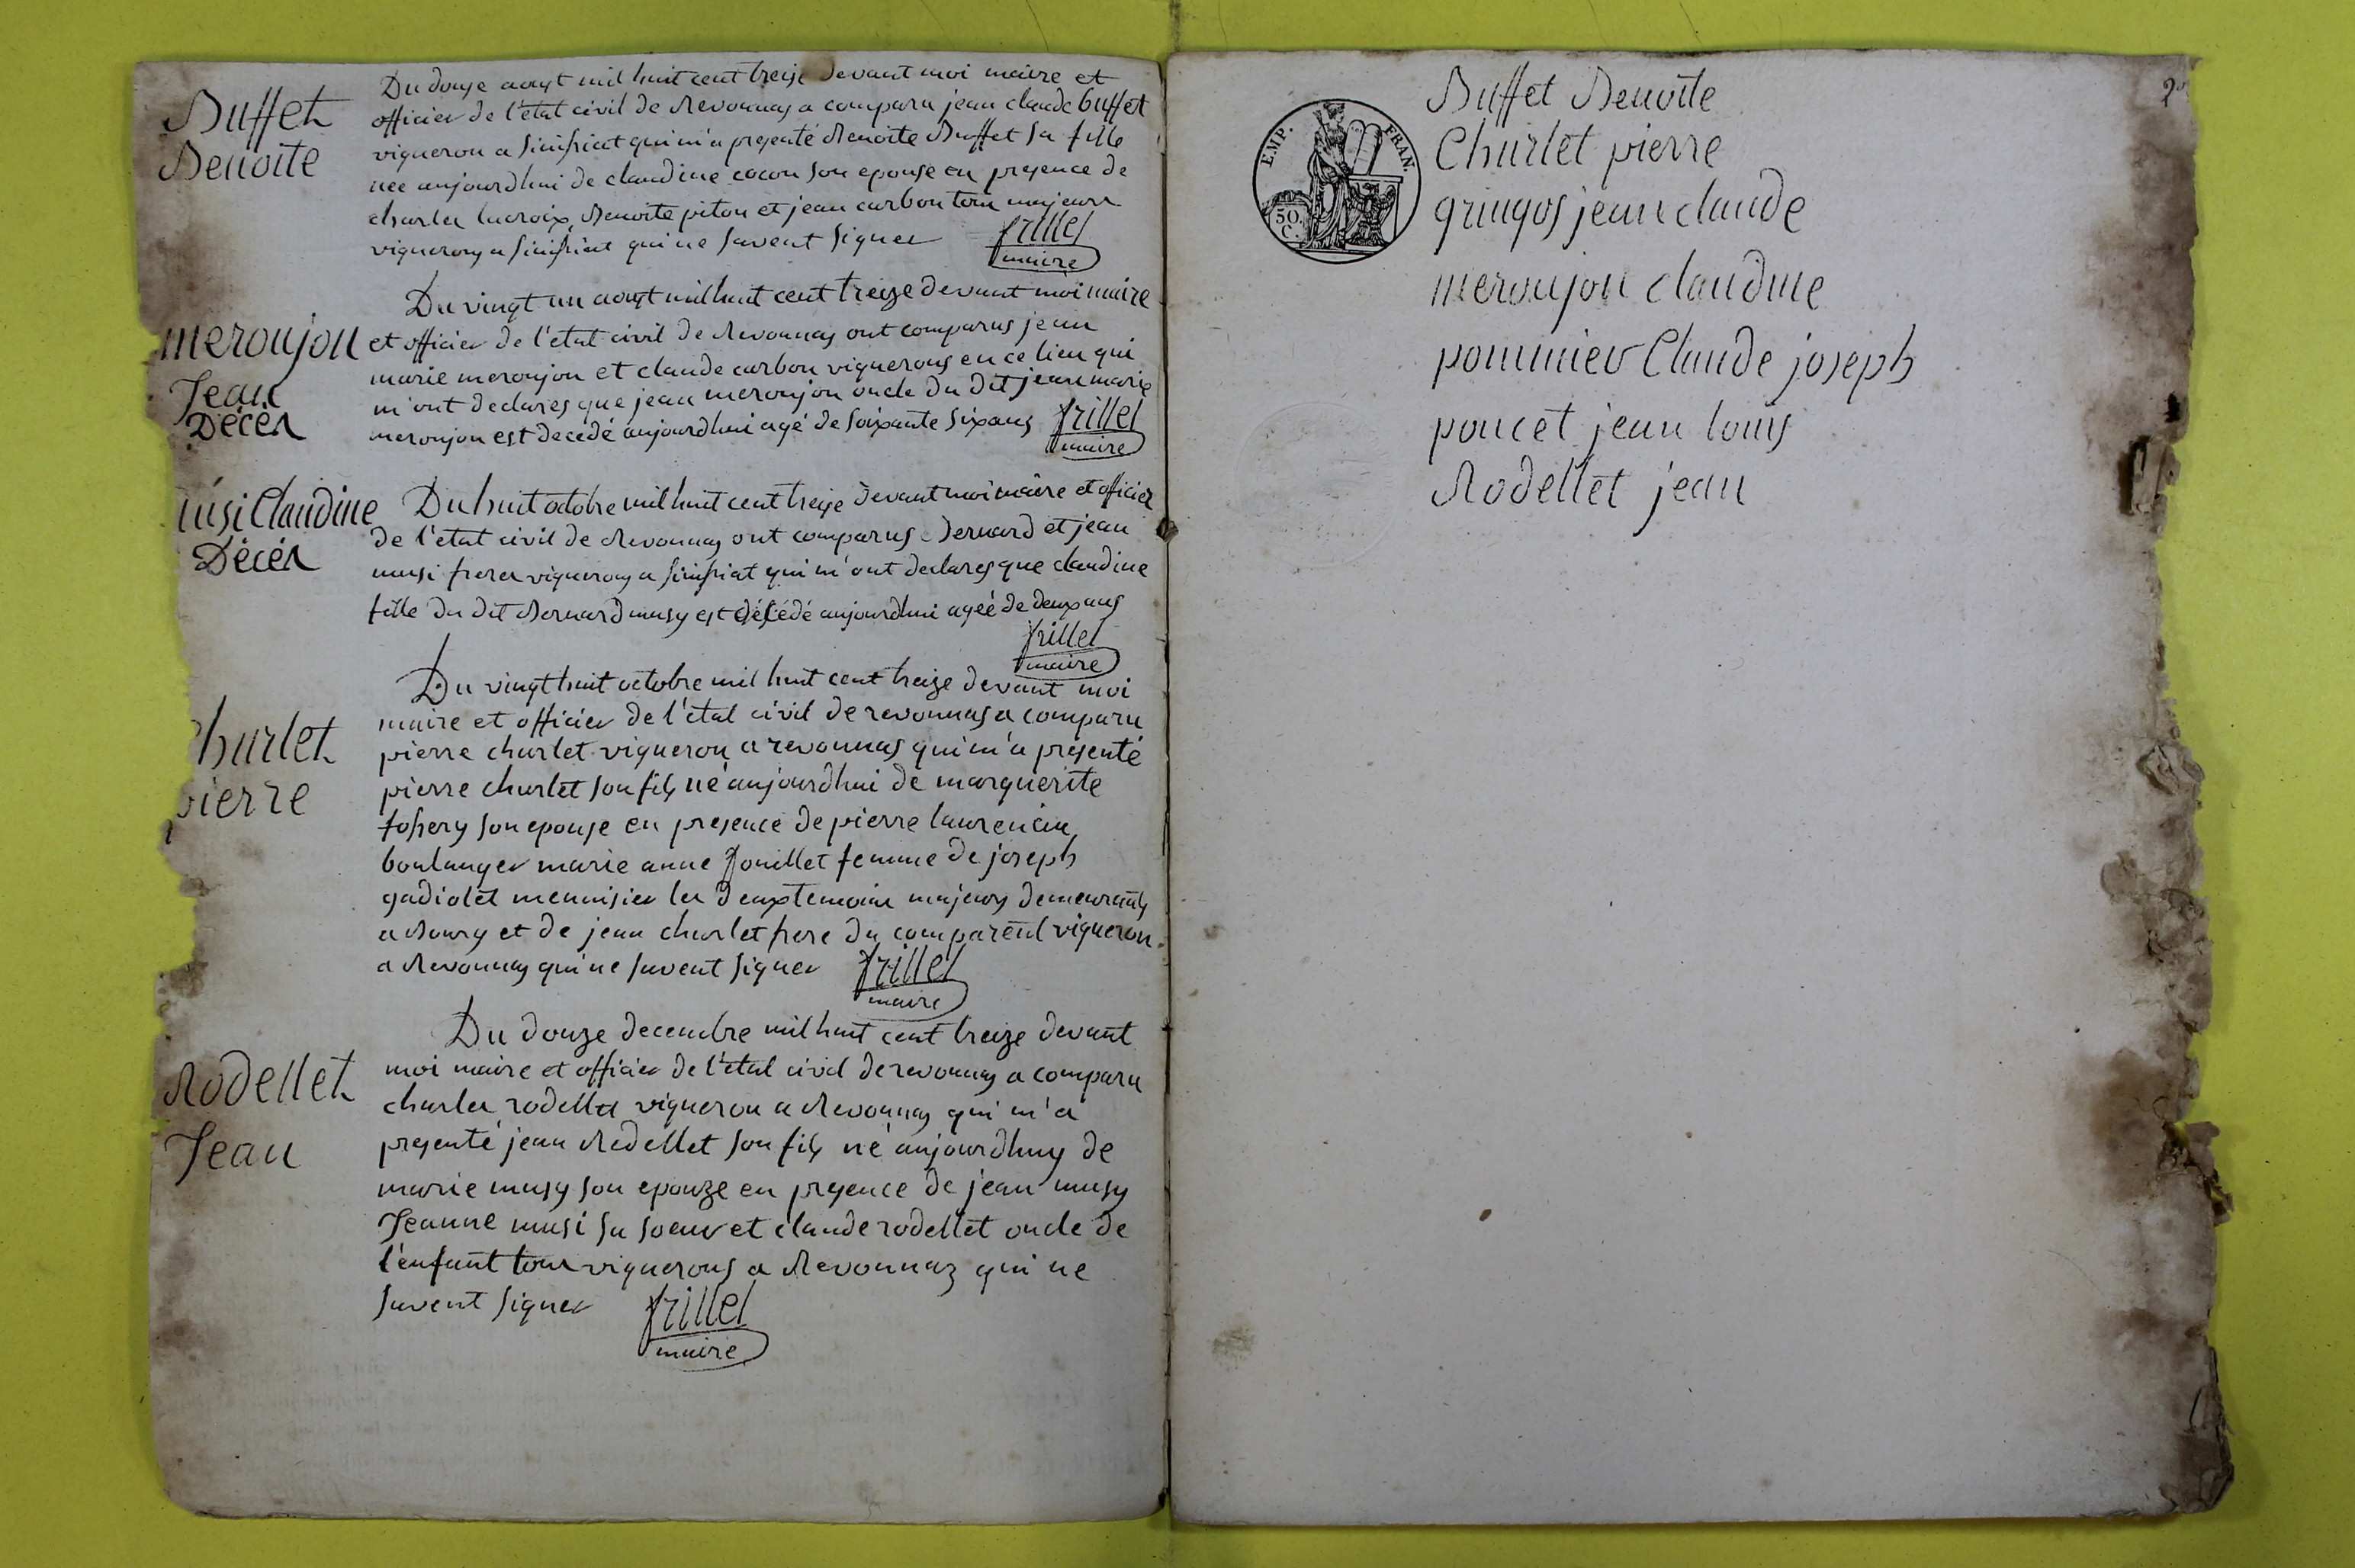 Buffet
Benoite
Du douze aoust mil huit cent treize devant moi maire et
officier de l'état civil de Revonnas a comparu jean claude buffet
vigneron a Sinssiat qui m'a presenté Benoite Buffet sa fille
née aujourdhui de claudine cocon son epouse en presence de
charles lacroix, Benoite piton et jean carbon tous majeurs
vignerons a Sinssiat qui ne savent signer frillet
maire
meroujon
Jean
Décés
Du vingt un aoust mil huit cent treize devant moi maire
et officier de l'état civil de Revonnas ont comparus jean
marie meroujon et claude carbon vignerons en ce lieu qui
m'ont declarés que jean meroujon oncle du dit jean marie
meroujon est decedé aujourdhui agé de soixante six ans frillet
maire
musi Claudine
Décés
Du huit octobre mil huit cent treize devant moi maire et officier
de l'état civil de Revonnas ont comparus Bernard et jean
musi freres vignerons a sinssiat qui m'ont declarés que claudine
fille du dit Bernard musy est décédé aujourdhui ageé de deux ans
frillet
maire
Churlet
pierre
Du vingt huit octobre mil huit cent treize devant moi
maire et officier de l'état civil de revonnas a comparu
pierre churlet vigneron a revonnas qui m'a presenté
pierre churlet son fils né aujourdhui de marguerite
son epouse en presence de pierre laurencin
boulanger marie anne femme de joseph
gadiolet menuisier les deux temoins majeurs demeurants
a Bourg et de jean churlet frere du comparent vigneron
a Revonnas qui ne savent signer frillet
maire
Rodellet
Jean
Du douze decembre mil huit cent treize devant
moi maire et officier de l'état civil de revonnas a comparu
charles rodellet vigneron a Revonnas qui m'a
presenté jean Rodellet son fils né aujourdhuy de
marie musy son epouze en presence de jean musy
Jeanne musi sa soeur et claude rodellet oncle de
l'enfant tous vignerons a Revonnaz qui ne
savent signer frillet
maire
2
EMP. FRAN.
50.
C.
Buffet Benoite
Churlet pierre
gringos jean claude
meroujon claudine
pommier Claude joseph
poncet jean louis
Rodellet jean